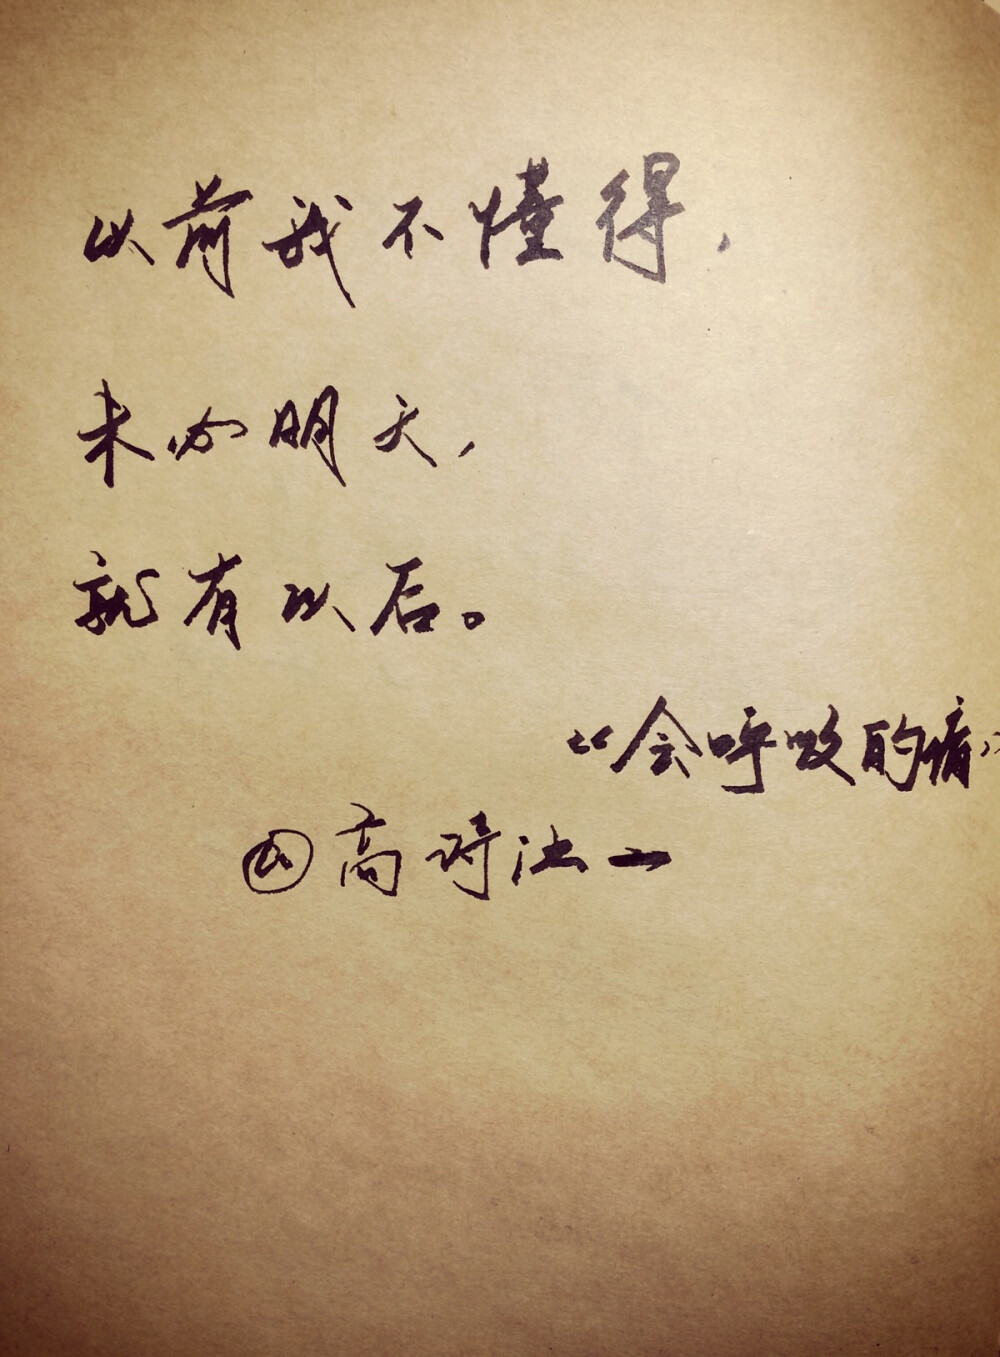 以前我不懂得，
未必明天，
就有以后。
“会呼吸的痛”
@高